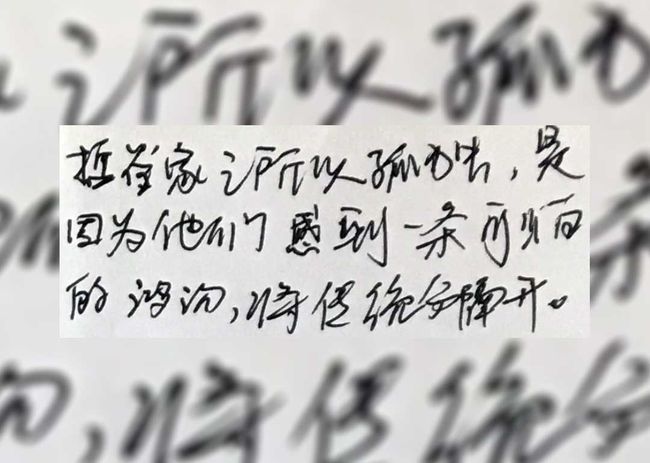 哲学家之所以孤独，是
因为他们感到一条可怕
的鸿沟，将传统分隔开。